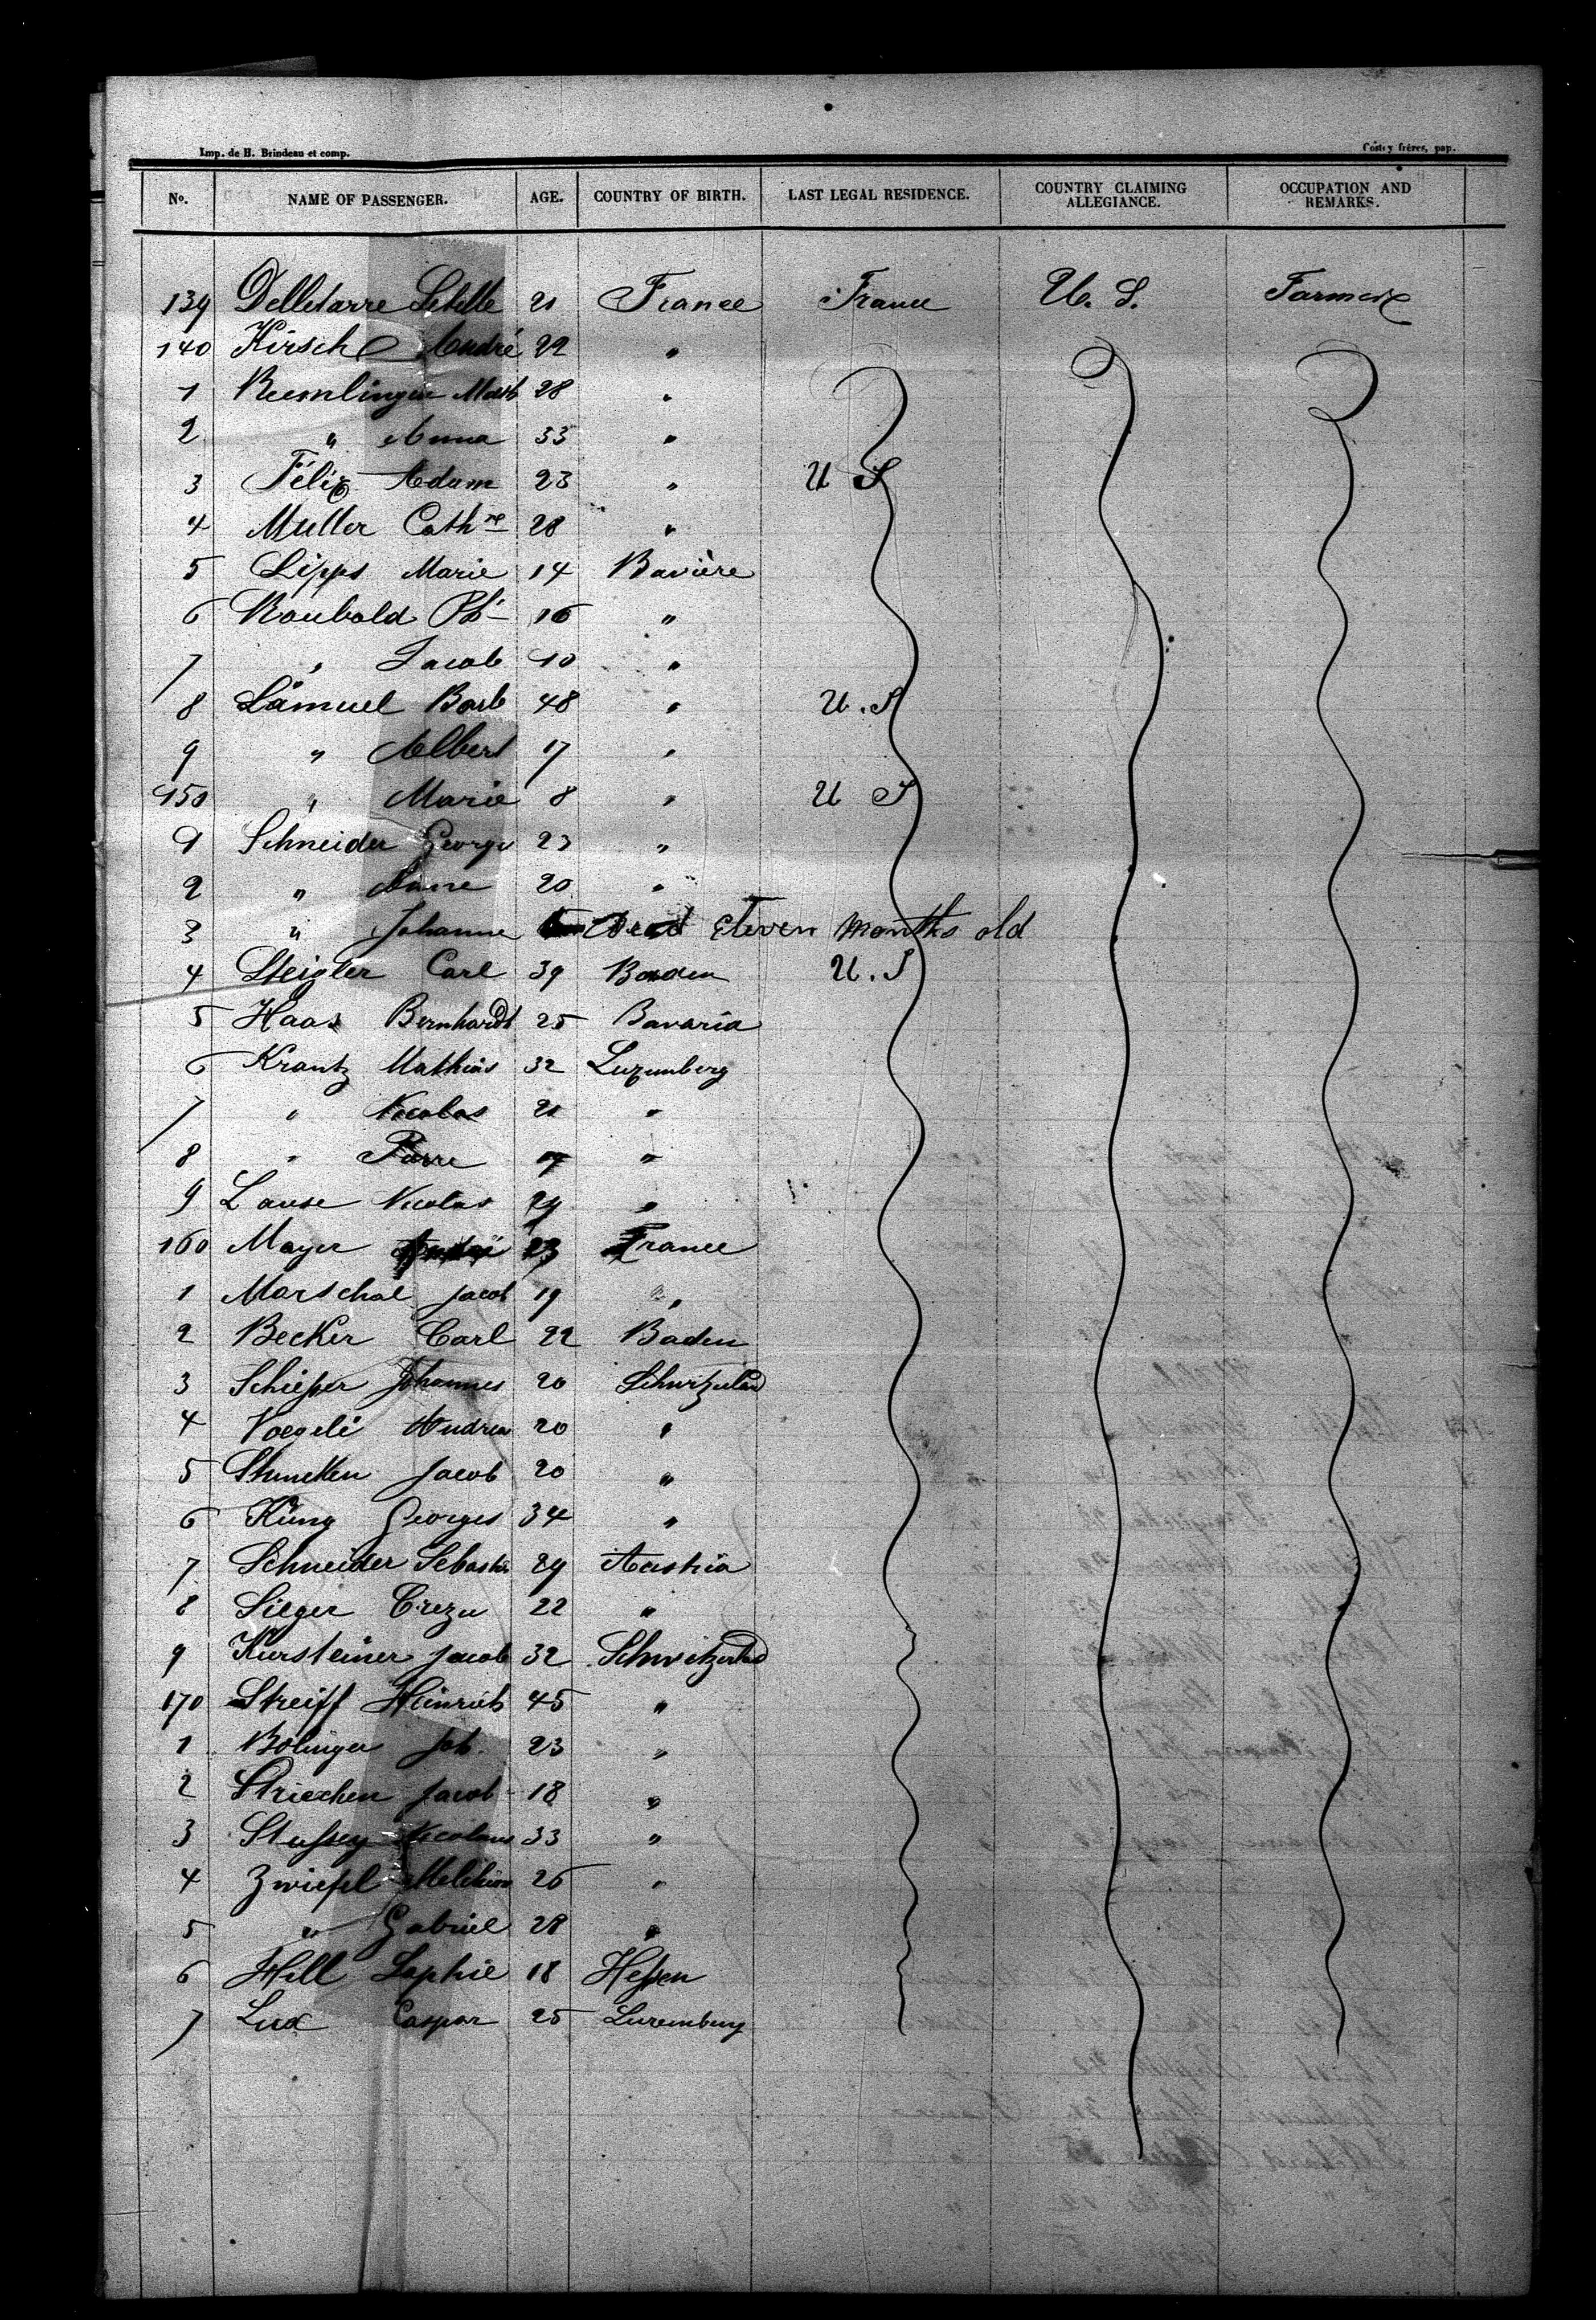 Imp. de H. Brindeau et comp. Costey frères, pap.
No. NAME OF PASSENGER. AGE. COUNTRY OF BIRTH. LAST LEGAL RESIDENCE. COUNTRY CLAIMING ALLEGIANCE. OCCUPATION AND REMARKS.
139 Delletarre 21 France France U. S. Farmer
140 Kirsch André 22 "
1 Remlinger 28 "
2 " Anna 33 "
3 Félix Adam 23 " U S
4 Muller Cathne 28 "
5 Lipps Marie 14 Bavière
6 Raubold Ph 16 "
7 " Jacob 10 "
8 Lämuel Barb 48 " U. S
9 " Albert 17 "
150 " Marie 8 " U S
1 Schneider George 23 "
2 " Anne 20 "
3 " Johanne Dead eleven months old
4 Steigler Carl 39 Baden U. S
5 Haas Bernhardt 25 Bavaria
6 Krantz Mathias 32 Luxumberg
7 " Nicolas 21 "
8 " Pierre "
9 Lause Nicolas 29 "
160 Mayer 23 France
1 Marschal Jacob 19 "
2 Becker Carl 22 Baden
3 Schiesser Johannes 20 Schwitzerland
4 Voegeli Andrea 20 "
5 Jacob 20 "
6 Küng Georges 34 "
7 Schneider Sebastin 29 Austria
8 Sieger 22 "
9 Kursteiner Jacob 32 Schwitzerland
170 Streiff Heinrich 45 "
1 Bolinger Joh. 23 "
2 Jacob 18 "
3 Stussey Nicolaus 33 "
4 Zwiefel Melchior 26 "
5 " Gabriel 28 "
6 Hill Sophie 18 Hessen
7 Lux Caspar 25 Luxemburg